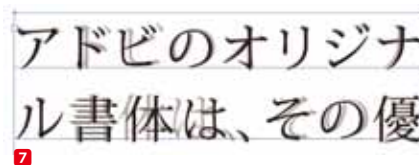 アドビのオリジナ
ル書体は、その優
7